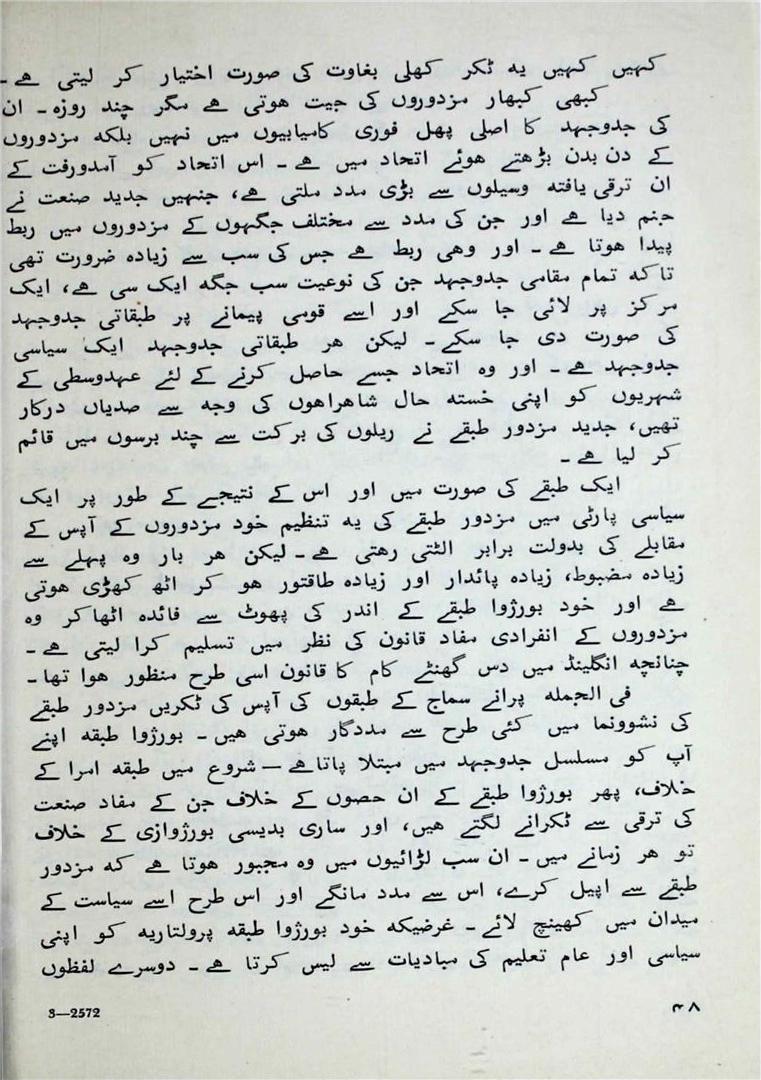 کہیں کہیں یہ ٹکر کھلی بغاوت کی صورت اختیار کر لیتی ہے ۔
کبھی کبھار مزدوروں کی جیت ہوتی ہے مگر چند روزہ ۔ ان
کی جدوجہد کا اصلی پھل فوری کامیابیوں میں نہیں بلکہ مزدوروں
کے دن بدن بڑھتے ہوئے اتحاد میں ہے ۔ اس اتحاد کو آمدورفت کے
ان ترقی یافتہ وسیلوں سے بڑی مدد ملتی ہے، جنہیں جدید صنعت نے
جنم دیا ہے اور جن کی مدد سے مختلف جگہوں کے مزدوروں میں ربط
پیدا ہوتا ہے ۔ اور وہی ربط ہے جس کی سب سے زیادہ ضرورت تھی
تاکہ تمام مقامی جدوجہد جن کی نوعیت سب جگہ ایک سی ہے، ایک
مرکز پر لائی جا سکے اور اسے قومی پیمانے پر طبقاتی جدوجہد
کی صورت دی جا سکے ۔ لیکن ہر طبقاتی جدوجہد ایک سیاسی
جدوجہد ہے ۔ اور وہ اتحاد جسے حاصل کرنے کے لئے عہدوسطی کے
شہریوں کو اپنی خستہ حال شاہراہوں کی وجہ سے صدیاں درکار
تھیں، جدید مزدور طبقے نے ریلوں کی برکت سے چند برسوں میں قائم
کر لیا ہے ۔
ایک طبقے کی صورت میں اور اس کے نتیجے کے طور پر ایک
سیاسی پارٹی میں مزدور طبقے کی یہ تنظیم خود مزدوروں کے آپس کے
مقابلے کی بدولت برابر الٹتی رہتی ہے ۔ لیکن ہر بار وہ پہلے سے
زیادہ مضبوط، زیادہ پائدار اور زیادہ طاقتور ہو کر اٹھ کھڑی ہوتی
ہے اور خود بورژوا طبقے کے اندر کی پھوٹ سے فائدہ اٹھاکر وہ
مزدوروں کے انفرادی مفاد قانون کی نظر میں تسلیم کرا لیتی ہے ۔
چنانچہ انگلینڈ میں دس گھنٹے کام کا قانون اسی طرح منظور ہوا تھا ۔
فی الجملہ پرانے سماج کے طبقوں کی آپس کی ٹکریں مزدور طبقے
کی نشوونما میں کئی طرح سے مددگار ہوتی ہیں ۔ بورژوا طبقہ اپنے
آپ کو مسلسل جدوجہد میں مبتلا پاتاہے — شروع میں طبقہ امرا کے
خلاف، پھر بورژوا طبقے کے ان حصوں کے خلاف جن کے مفاد صنعت
کی ترقی سے ٹکرانے لگتے ہیں، اور ساری بدیسی بورژوازی کے خلاف
تو ہر زمانے میں ۔ ان سب لڑائیوں میں وہ مجبور ہوتا ہے کہ مزدور
طبقے سے اپیل کرے، اس سے مدد مانگے اور اس طرح اسے سیاست کے
میدان میں کھینچ لائے ۔ غرضیکہ خود بورژوا طبقہ پرولتاریہ کو اپنی
سیاسی اور عام تعلیم کی مبادیات سے لیس کرتا ہے ۔ دوسرے لفظوں
۴۸
3—2572